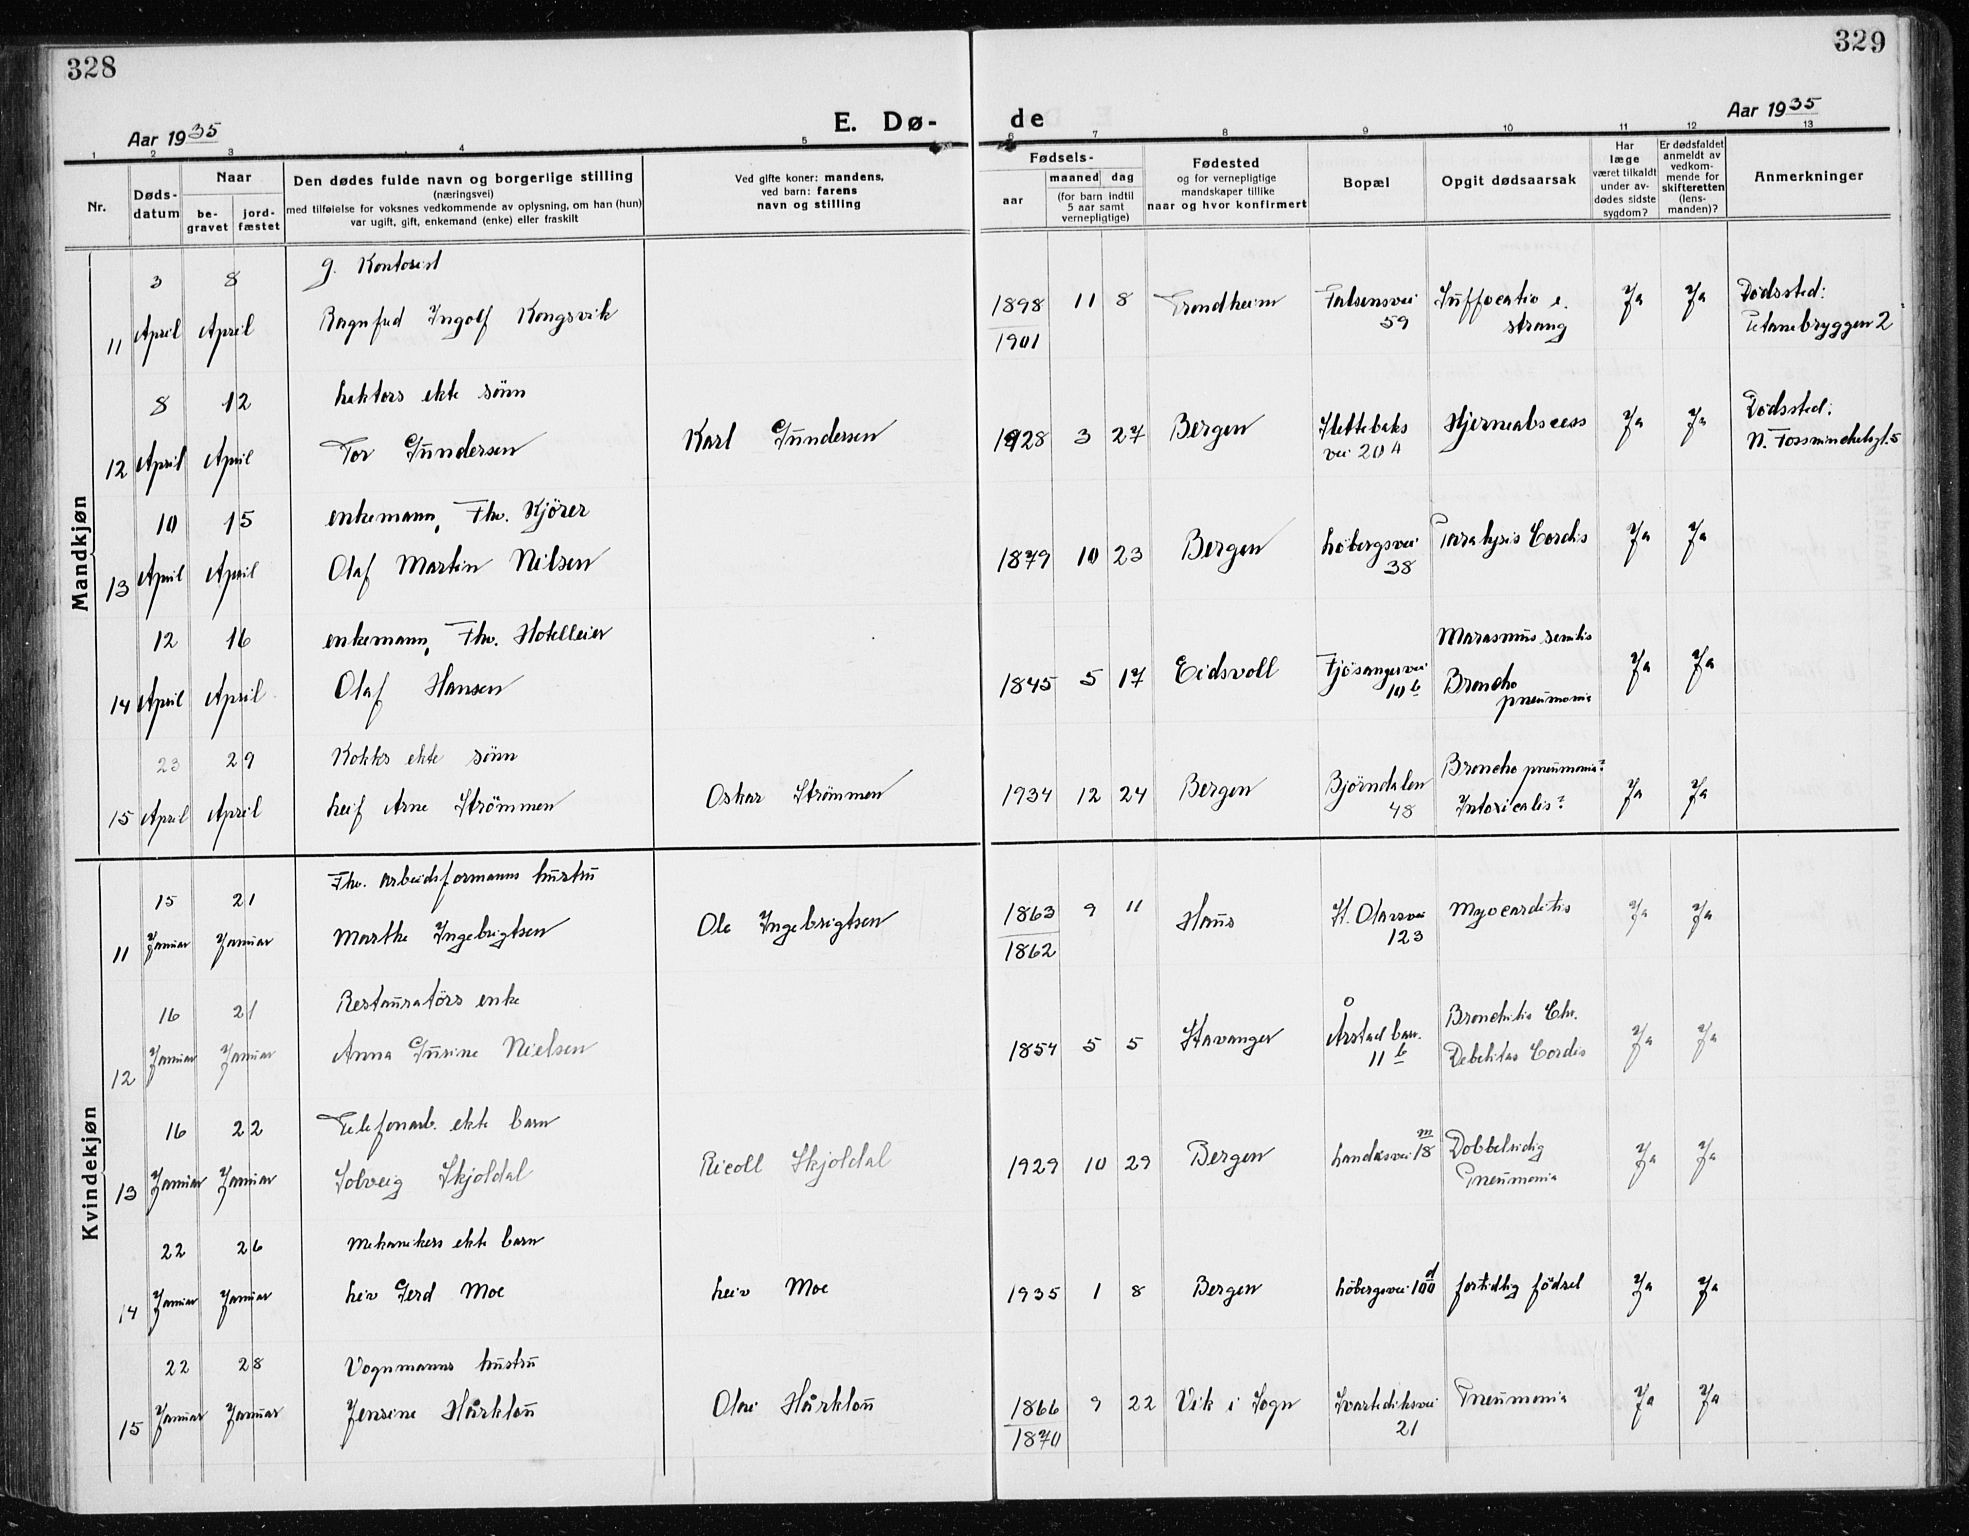 328
329
Aar 1935
E. Dø-
de
Aar 1935
1 2 3 4 5 6 7 8 9 10 11 12 13
Nr.
Døds-
datum
Naar
be-
gravet
jord-
fæstet
Den dødes fulde navn og borgerlige stilling
(næringsvei)
med tilføielse for voksnes vedkommende av oplysning, om han (hun)
var ugift, gift, enkemand (enke) eller fraskilt
Ved gifte koner: mandens,
ved barn: farens
navn og stilling
Fødsels-
aar
maaned dag
(for barn indtil
5 aar samt
vernepligtige)
Fødested
og for vernepligtige
mandskaper tillike
naar og hvor konfirmert
Bopæl
Opgit dødsaarsak
Har
læge
været tilkaldt
under av-
dødes sidste
sygdom?
Er dødsfaldet
anmeldt av
vedkom-
mende for
skifteretten
(lens-
manden)?
Anmerkninger
Mandkjøn
3 8 g. Kontorist
11 April April Ragnfred Ingolf Kongsvik 1898 11 8 Trondheim Falsensvei Suffocatio e. Ja Ja Dødssted:
1901 59 strang 2
8 12 Lektors ekte sönn Dödssted:
12 April April Tor Gundersen Karl Gundersen 1928 3 27 Bergen Slettebaks Hjerneabscess Ja Ja
vei 204
10 15 enkemann, Fhv. Kjörer
13 April April Olaf Martin Nilsen 1879 10 23 Bergen Löbergsvei Paralysis Cordis Ja Ja
38
12 16 enkemann, Fhv. Hotelleier Marasmus senilis
14 April April Olaf Hansen 1845 5 17 Eidsvoll Fjösangervei Broncho Ja Ja
10 b pneumonia
23 29 Kokks ekte sönn Broncho pneumonia?
15 April April Leif Arne Strömmen Oskar Strömmen 1934 12 24 Bergen Björndalen Intoxicalis? Ja Ja
48
Kvindekjøn
15 21 Fhv. Arbeidsformanns hustru
11 Januar Januar Marthe Ingebrigtsen Ole Ingebrigtsen 1863 9 11 Haus St. Olavsvei Myocarditis Ja Ja
1862 123
16 21 Restauratörs enke Bronchitis Chr.
12 Januar Januar Anna Gurine Nielsen 1854 5 5 Stavanger Årstad bar. Debilitas Cordis Ja Ja
11 b
16 22 Telefonarb. ekte barn
13 Januar Januar Solveig Skjoldal Ricoll Skjoldal 1929 10 29 Bergen Landåsvei 18 m Dobbelsidig Ja Ja
Pneumonia
22 26 Mekanikers ekte barn
14 Januar Januar Liv Gerd Moe Leiv Moe 1935 1 8 Bergen Löbergsvei 100 d fortidlig födsel Ja Ja
22 28 Vognmanns hustru
15 Januar Januar Jensine Hårklau Olai Hårklau 1866 9 22 Vik i Sogn Svartediksvei Pneumonia Ja Ja
1870 21